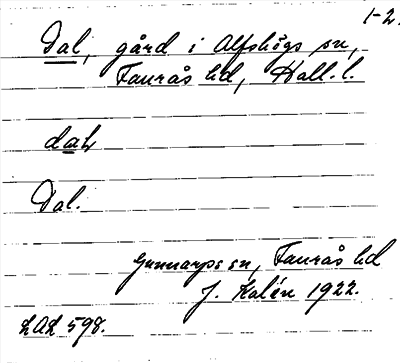 1-2.
Dal, gård i Alfshögs sn,
Faurås hd, Hall. l.
dɑL
Dal.
Gunnarps sn, Faurås hd
J. Kalén 1922.
LAL 598.